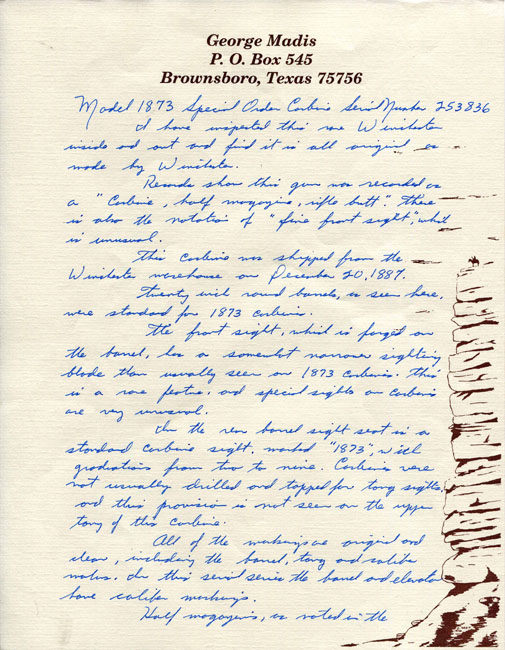 George Madis
P. O. Box 545
Brownsboro, Texas 75756
Model 1873 Special Order Carbine Serial Number 253836
I have inspected this rare Winchester
inside and out and find it is all original as
made by Winchester.
Records show this gun was recorded as
a "Carbine, half magazine, rifle butt". There
is also the notation of "fine front sight", which
is unusual.
This carbine was shipped from the
Winchester warehouse on December 20, 1887.
Twenty inch round barrels, as seen here,
were standard for 1873 carbines.
The front sight, which is forged on
the barrel, has a somewhat narrower sighting
blade than usually seen on 1873 carbines. This
is a rare feature, and special sights on carbines
are very unusual.
In the rear barrel sight seat is a
standard carbine sight, marked "1873", with
graduations from two to nine. Carbines were
not usually drilled and tapped for tang sights,
and this provision is not seen on the upper
tang of this carbine.
All of the markings are original and
clear, including the barrel, tang and caliber
marks. In this serial series the barrel and elevator
have caliber markings.
Half magazines, as noted in the